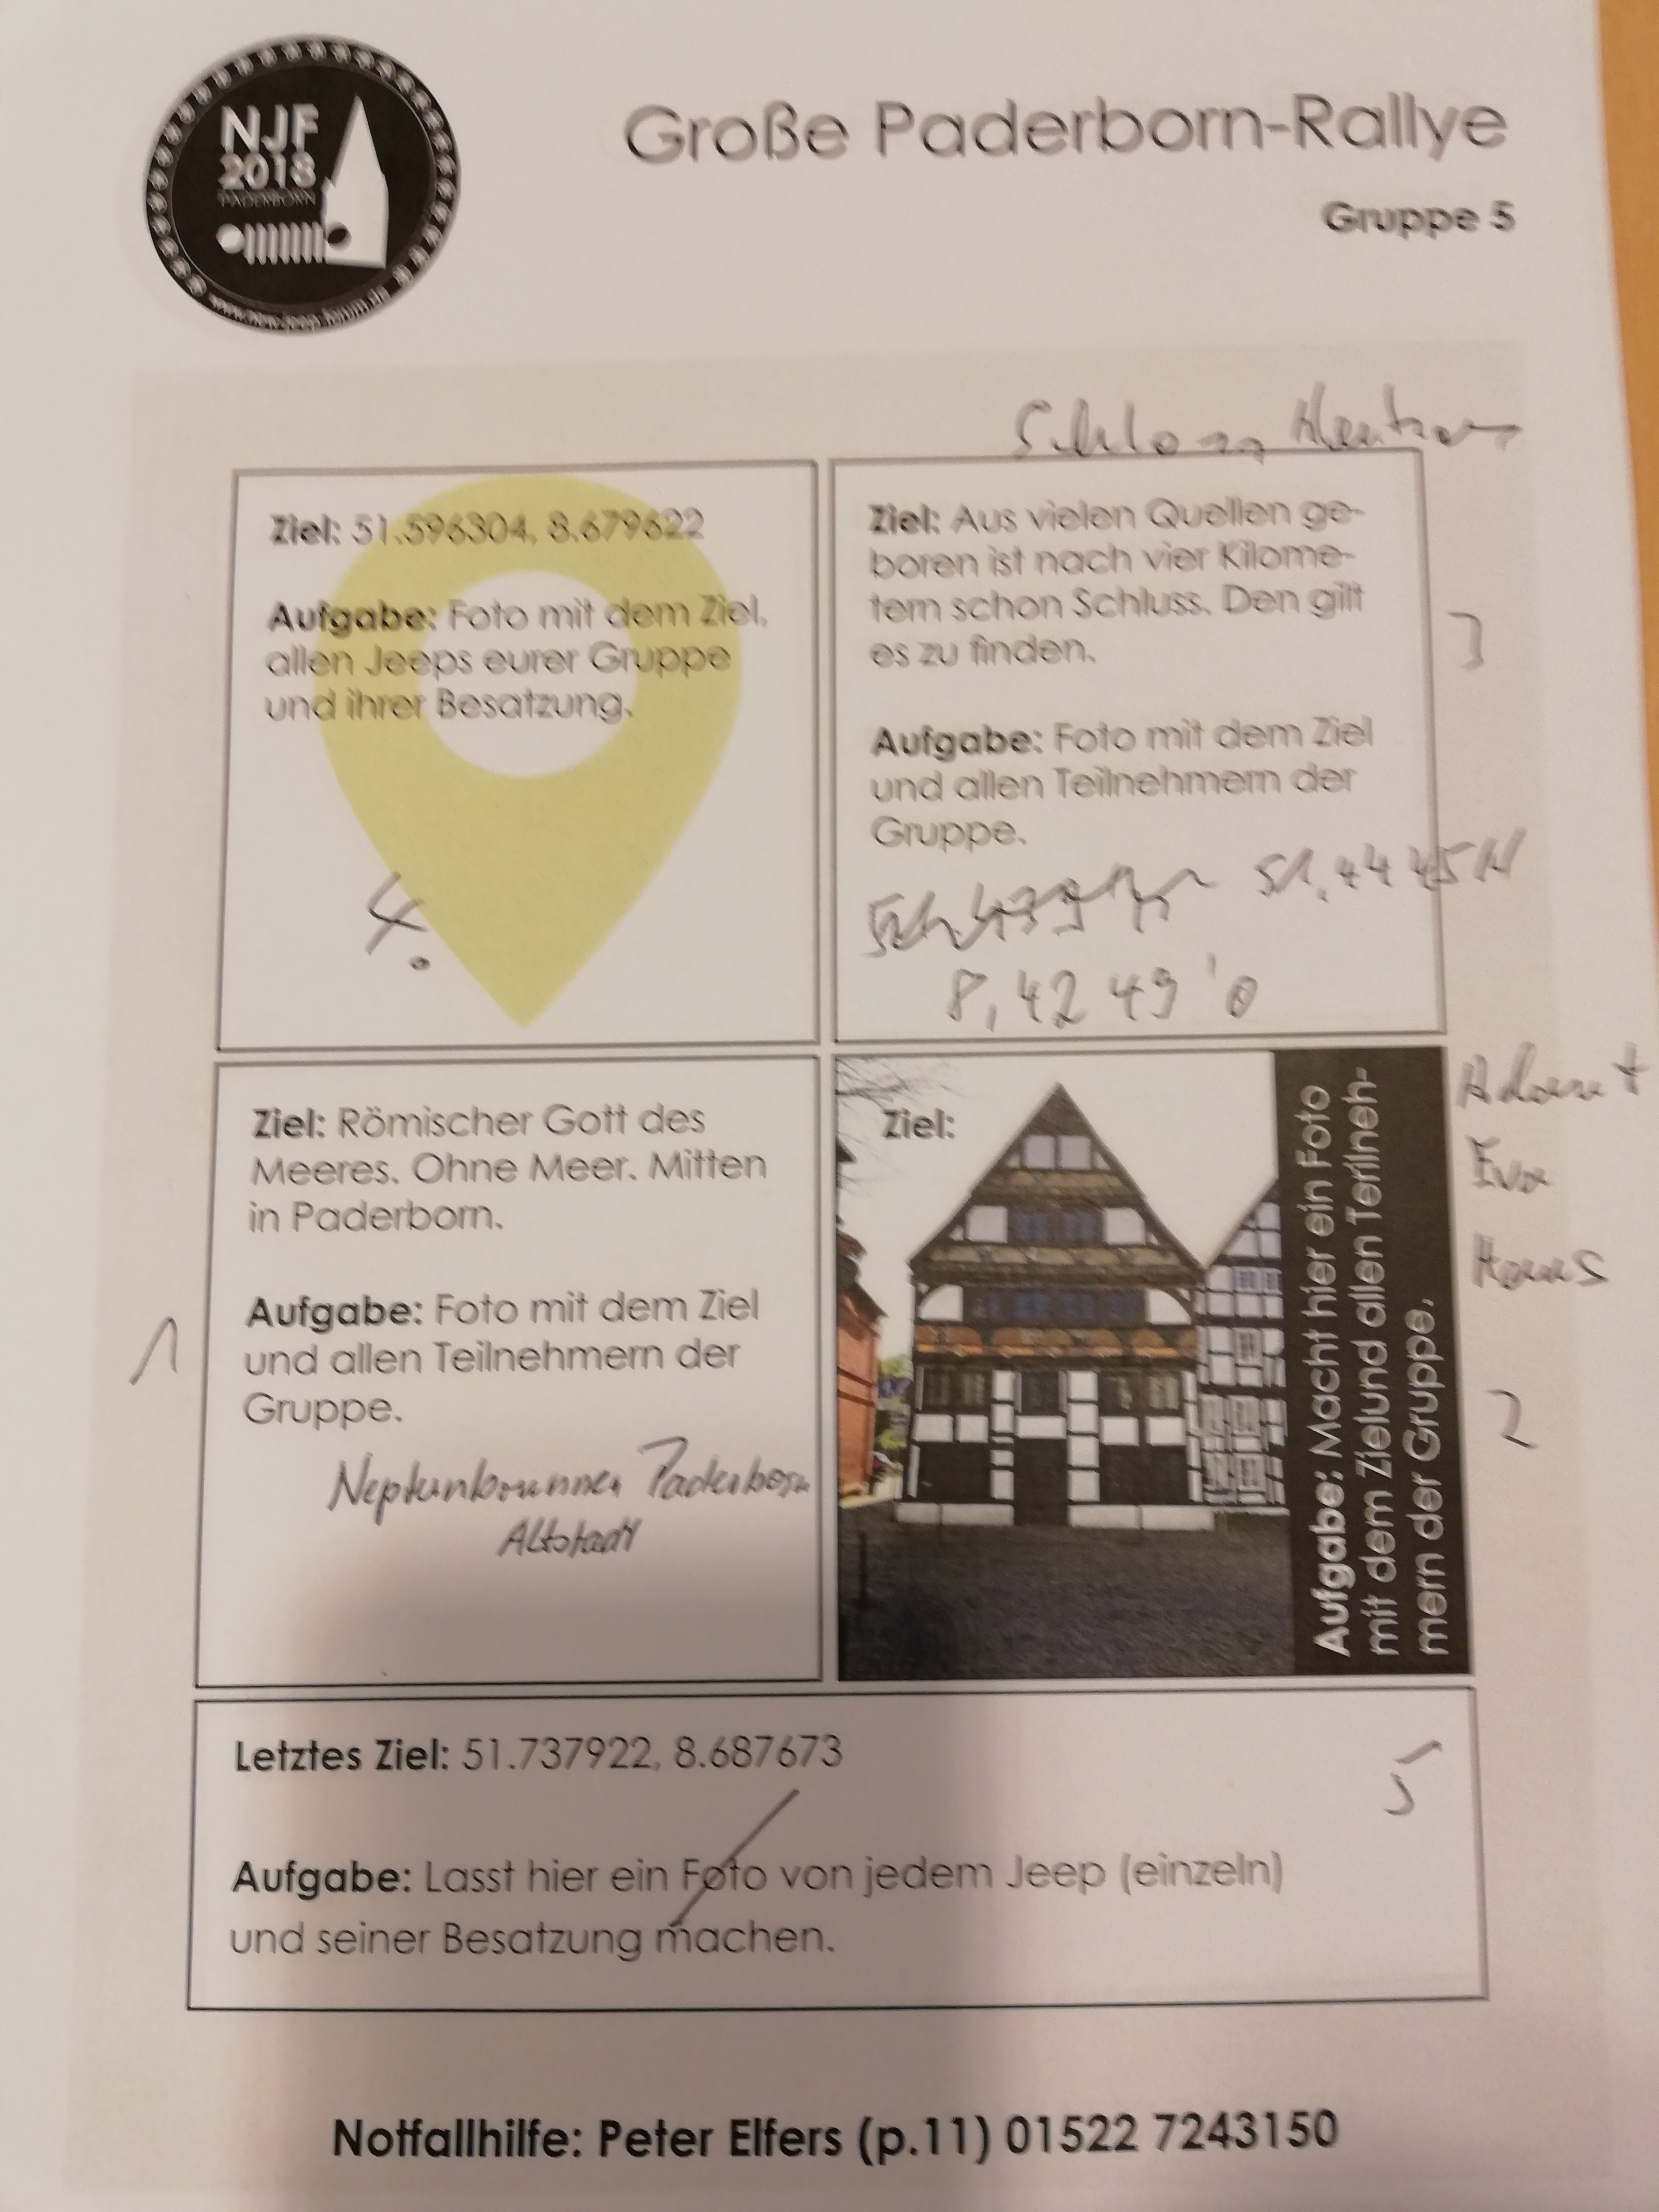 NJF
2018
PADERBORN
www.new-jeep-forum.de
Große Paderborn-Rallye
Gruppe 5
Schloss
Ziel: 51.596304, 8.679622
Aufgabe: Foto mit dem Ziel,
allen Jeeps eurer Gruppe
und ihrer Besatzung.
4.
Ziel: Aus vielen Quellen ge-
boren ist nach vier Kilome-
tern schon Schluss. Den gilt
es zu finden.
3
Aufgabe: Foto mit dem Ziel
und allen Teilnehmern der
Gruppe.
51,4445N
8,4249'O
Ziel: Römischer Gott des
Meeres. Ohne Meer. Mitten
in Paderborn.
1
Aufgabe: Foto mit dem Ziel
und allen Teilnehmern der
Gruppe.
Neptunbrunnen Paderborn
Altstadt
Ziel:
Aufgabe: Macht hier ein Foto
mit dem Zielund allen Terilneh-
mern der Gruppe.
Adam +
Eva
Haus
2
Letztes Ziel: 51.737922, 8.687673
5
Aufgabe: Lasst hier ein Foto von jedem Jeep (einzeln)
und seiner Besatzung machen.
Notfallhilfe: Peter Elfers (p.11) 01522 7243150